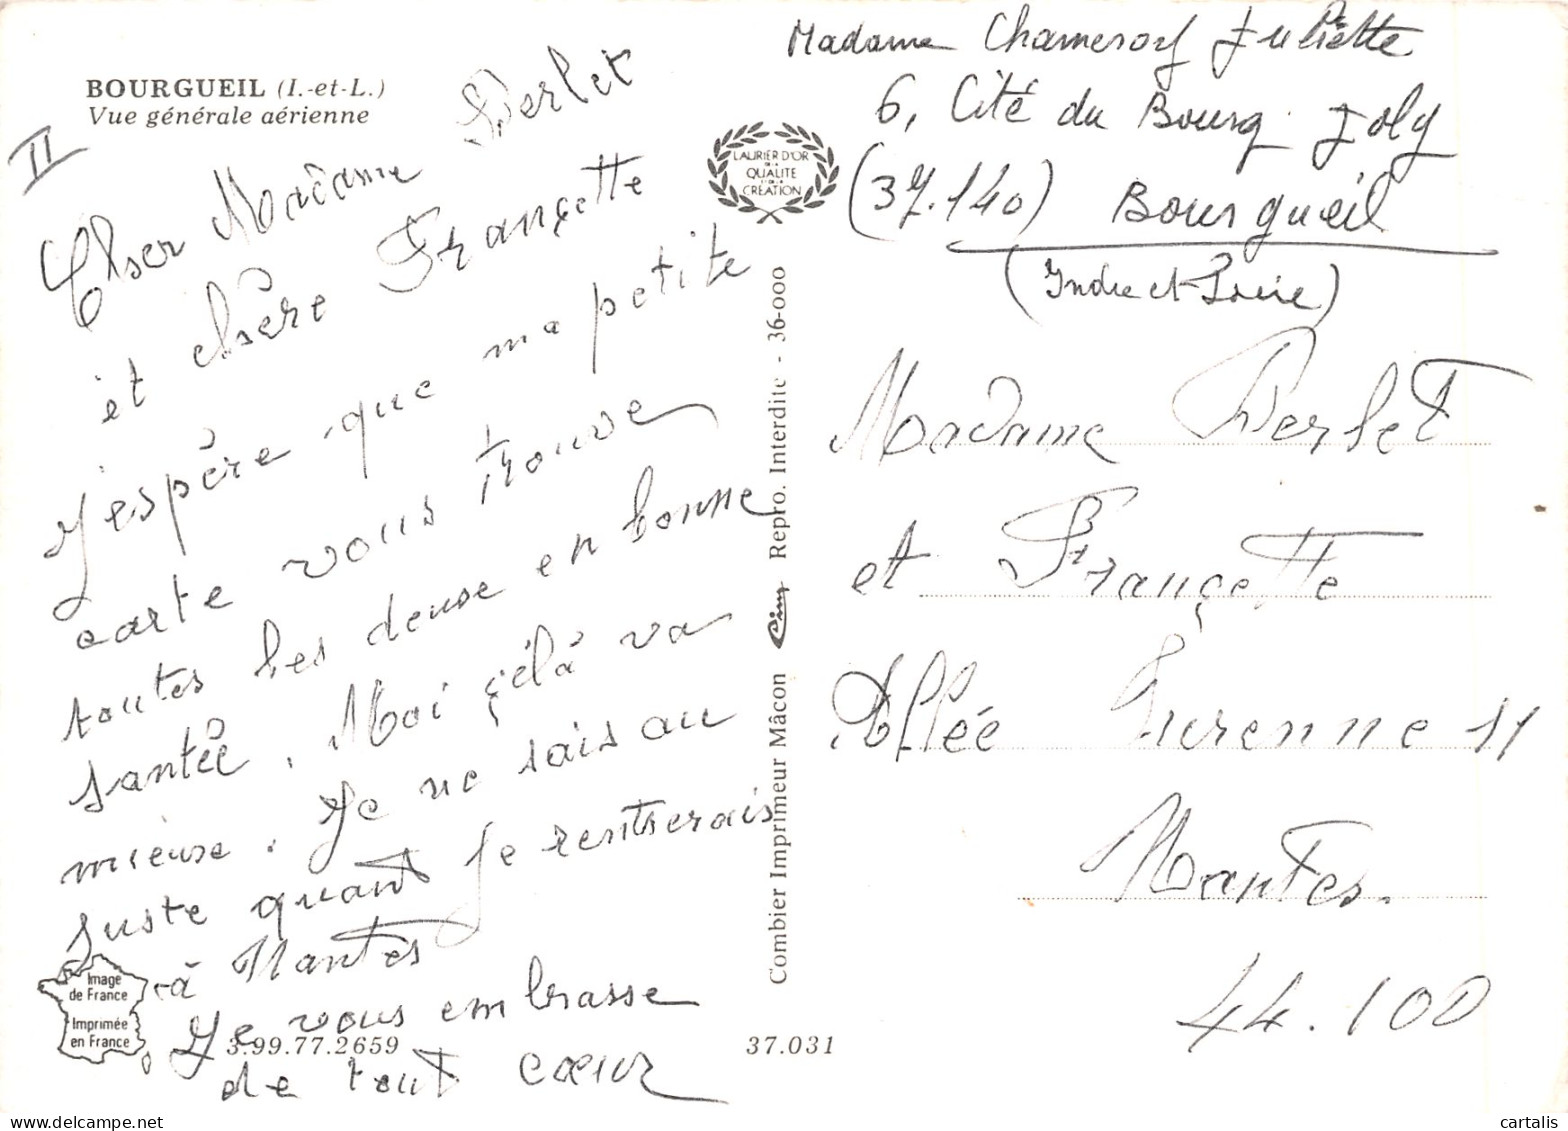 BOURGUEIL (I.-et-L.)
Vue générale aérienne
II
Cher Madame Derlet
et chère Françette
j'espère que ma petite
carte vous trouve
toutes les deuse en bonne
santée. Moi çélà va
mieuse. Je ne sais au
juste quant je rentrerais
à Nantes
Je vous embrasse
de tout cœur
Image
de France
Imprimée
en France
3.99.77.2659
37.031
Combier Imprimeur Mâcon Cim Repro. Interdite - 36-000
LAURIER D'OR
DE LA
QUALITE
ET DE LA
CREATION
Madame Chameroy Juliette
6, Cité du Bourg Joly
(37.140) Bourgueil
(Indre et Loire)
Madame Derlet
et Françette
Allée Turenne 11
Nantes.
44.100
cartalis